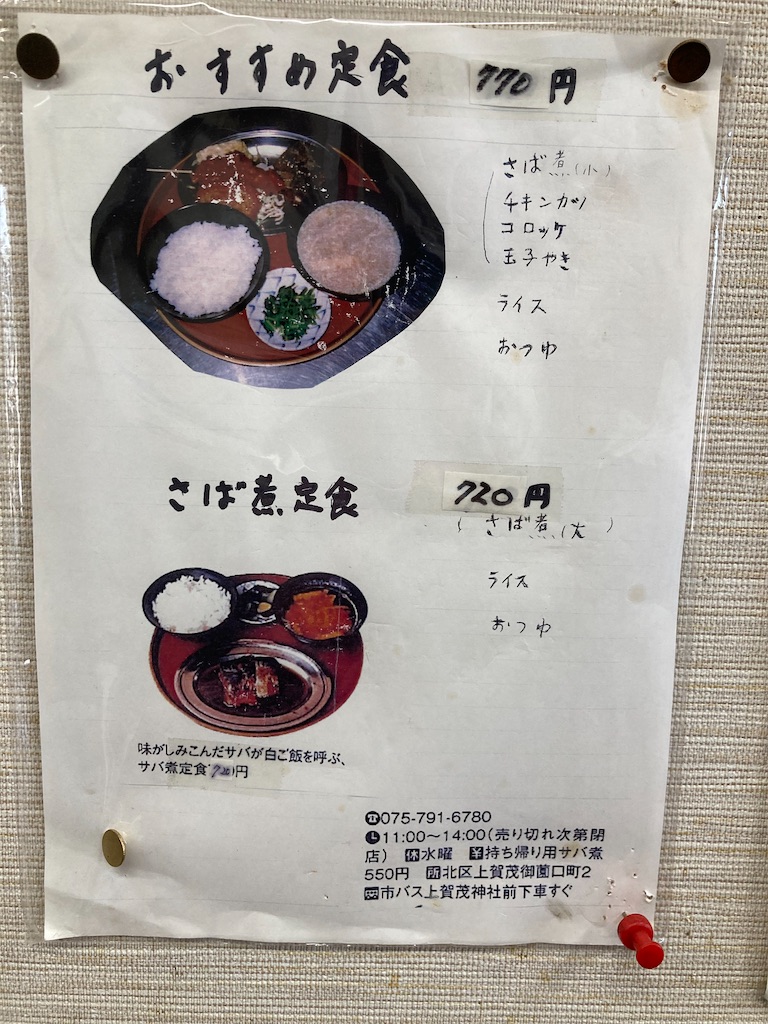 おすすめ定食 770円
さば煮(小)
チキンカツ
コロッケ
玉子やき
ライス
おつゆ
さば煮定食 720円
(さば煮(大)
ライス
おつゆ
味がしみこんだサバが白ご飯を呼ぶ、
サバ煮定食720円
☎075-791-6780
🕒11:00〜14:00(売り切れ次第閉
店) 休水曜 ¥持ち帰り用サバ煮
550円 所北区上賀茂御薗口町2
市バス上賀茂神社前下車すぐ